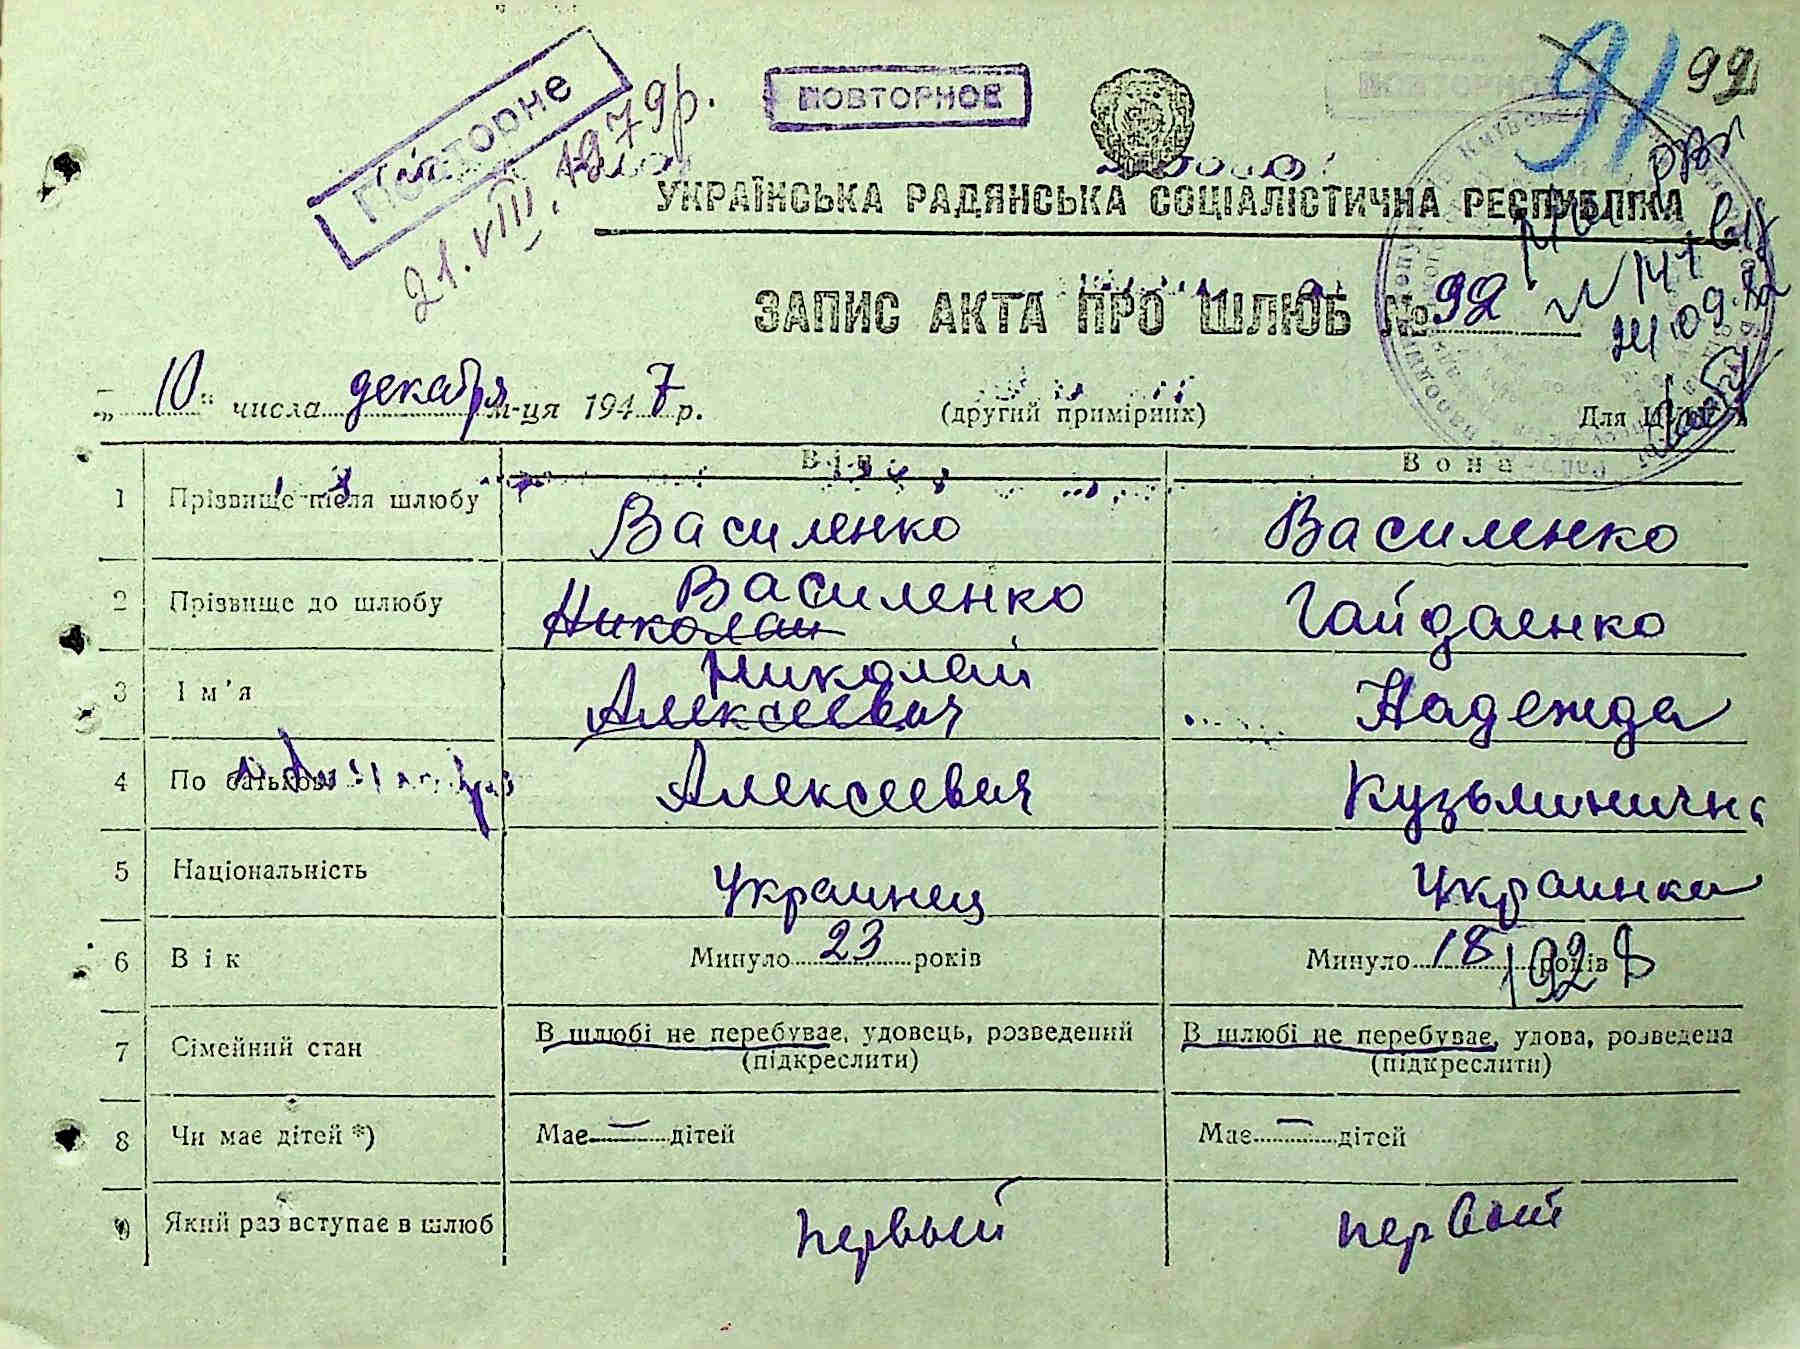 91 92
Повторне
ПОВТОРНОЕ
ПОВТОРНОЕ
21.VIII.1979р.
УКРАЇНСЬКА РАДЯНСЬКА СОЦІАЛІСТИЧНА РЕСПУБЛІКА
ЗАПИС АКТА ПРО ШЛЮБ № 92
„10" числа декабря м-ця 1947 р. (другий примірник) Для
Він Вона
1 Прізвище після шлюбу Василенко Василенко
2 Прізвище до шлюбу Василенко Гайдаенко
Николаи
3 Ім'я Николай Надежда
Алексеевич
4 По батькові Алексеевич Кузьминична
5 Національність Украинец Украинка
6 Вік Минуло 23 років Минуло 18 років 1928
7 Сімейний стан В шлюбі не перебуває, удовець, розведений В шлюбі не перебуває, удова, розведена
(підкреслити) (підкреслити)
8 Чи має дітей *) Має — дітей Має — дітей
9 Який раз вступає в шлюб первый первый